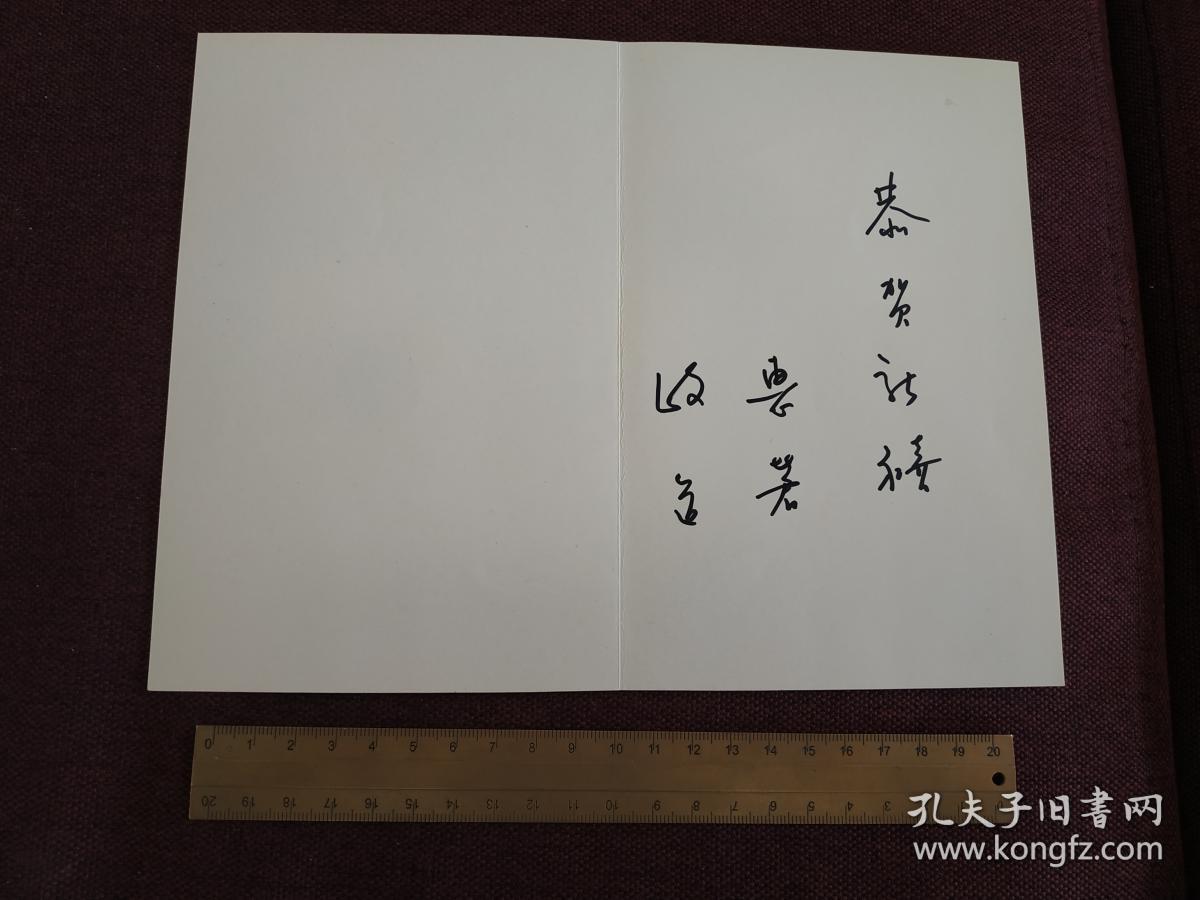 恭贺新禧
惠䇹
政道
0 1 2 3 4 5 6 7 8 9 10 11 12 13 14 15 16 17 18 19 20
20 19 18 17 16 15 14 13 12 11 10 9 8 7 6 5 4 3
孔夫子旧書网
www.kongfz.com